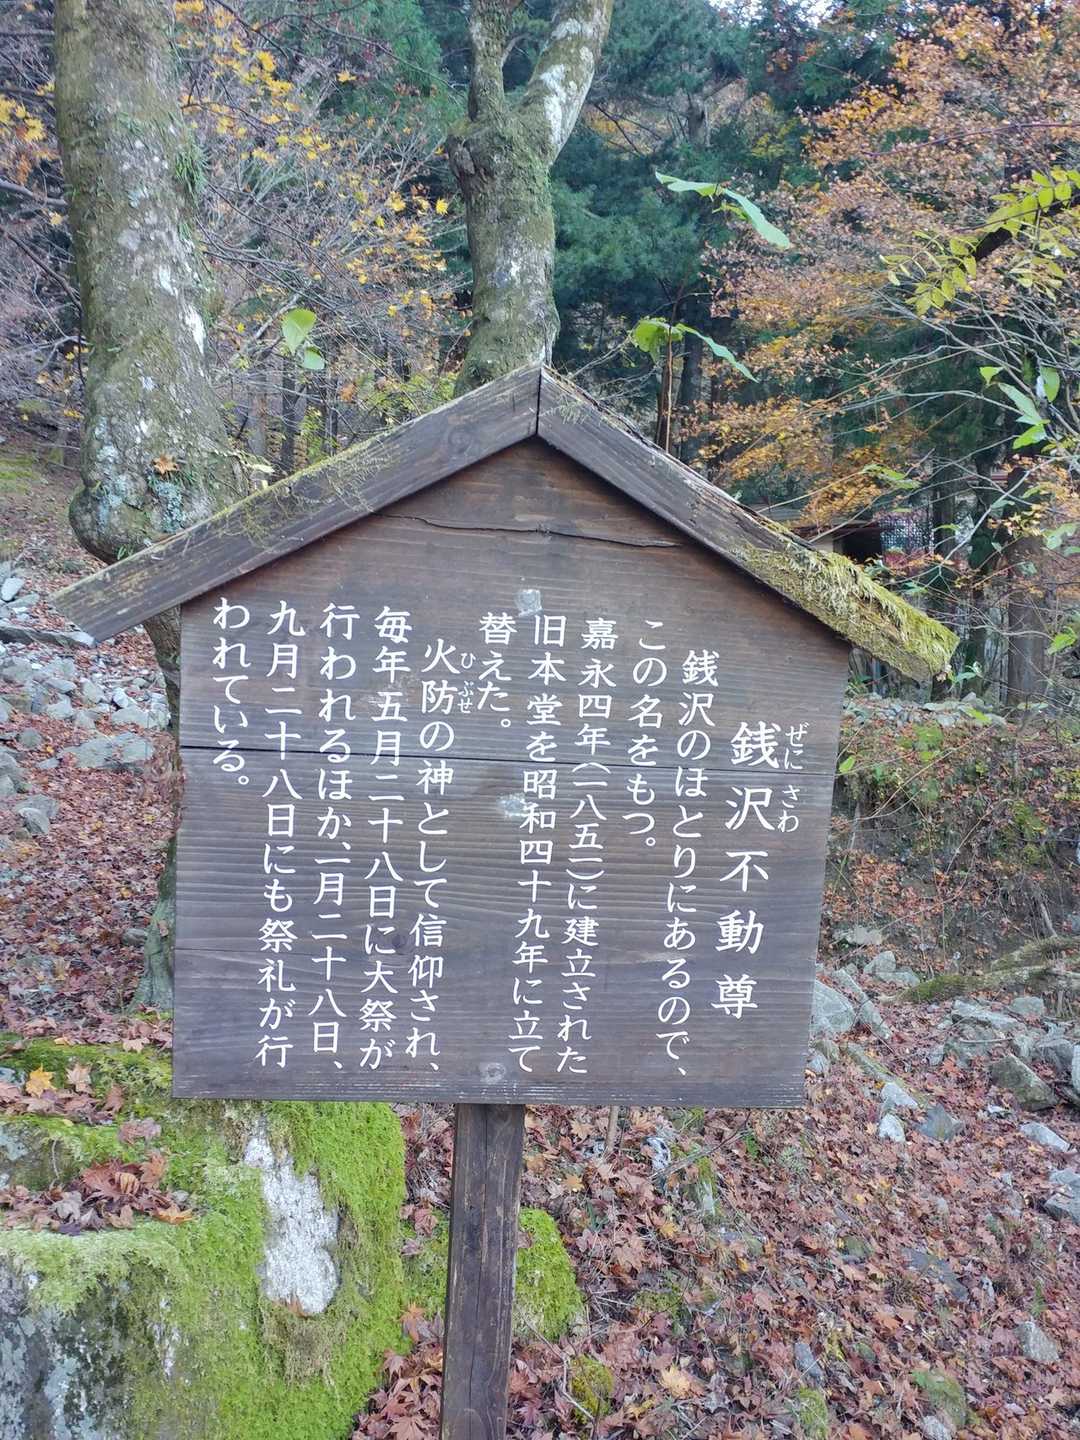 銭沢不動尊
ぜに さわ
銭沢のほとりにあるので、
この名をもつ。
嘉永四年(一八五一)に建立された
旧本堂を昭和四十九年に立て
替えた。
火防の神として信仰され、
ひぶせ
毎年五月二十八日に大祭が
行われるほか、一月二十八日、
九月二十八日にも祭礼が行
われている。